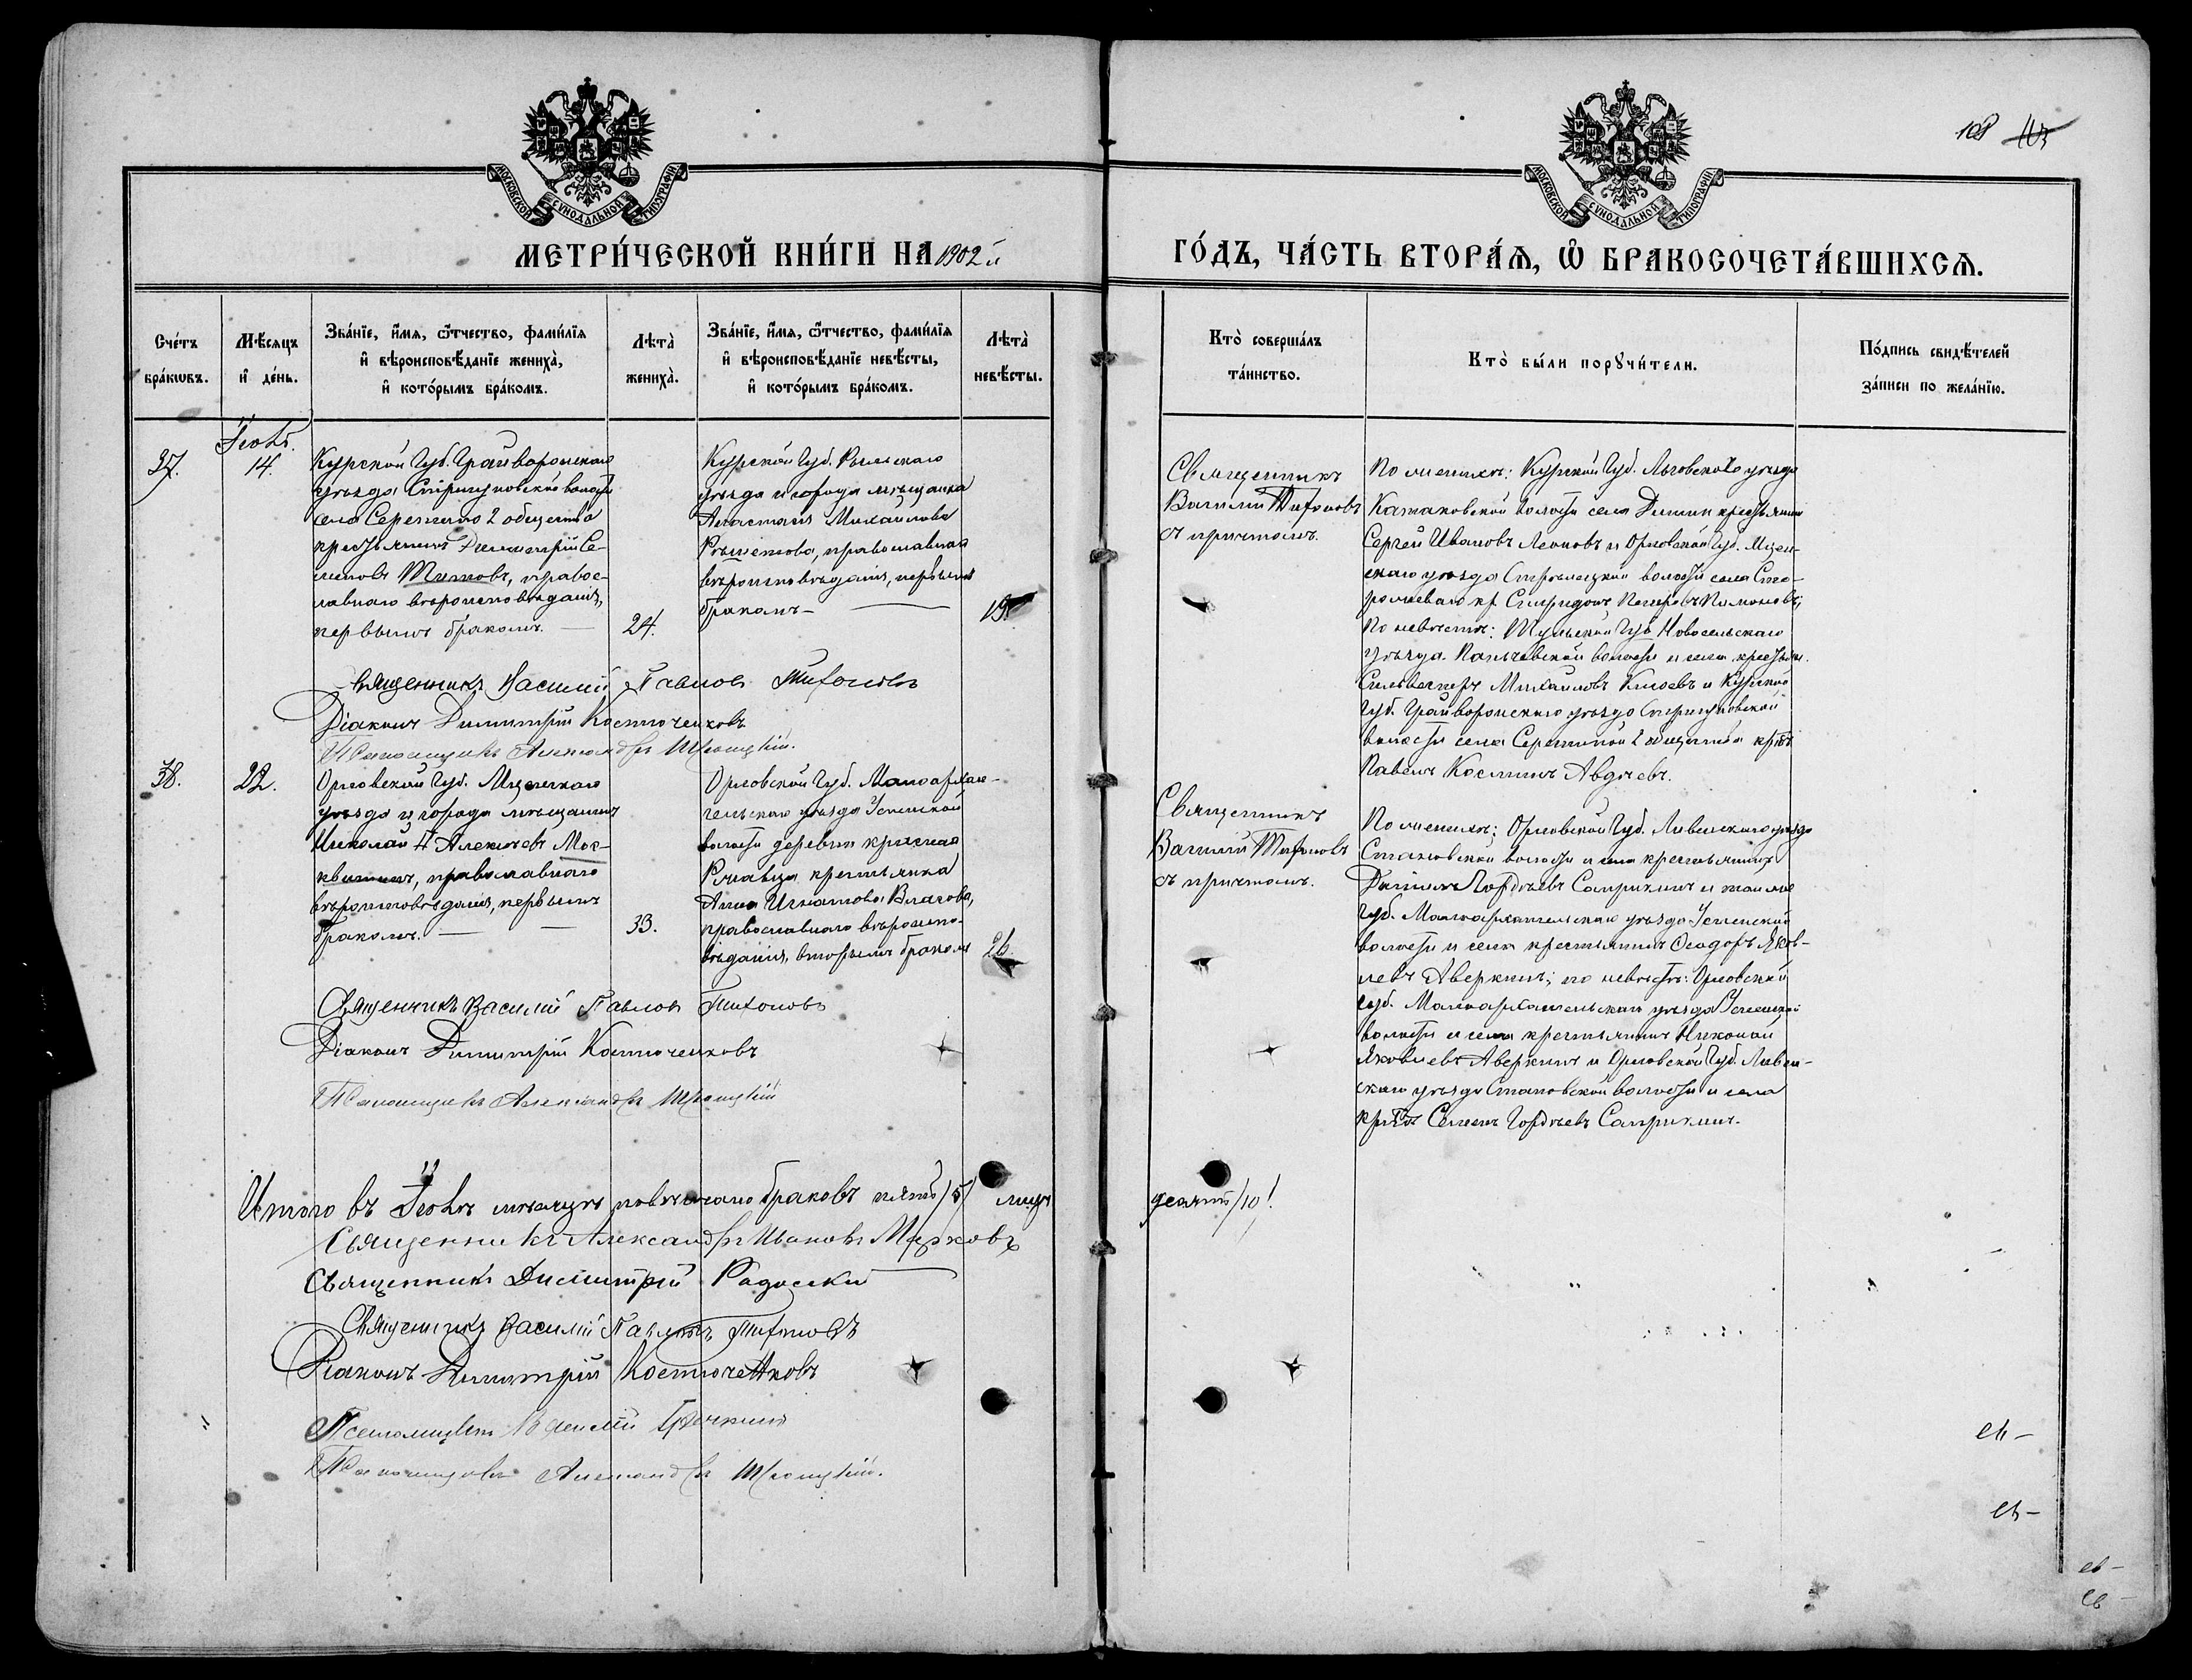 108 103
МОСКОВСКОЙ СУНОДАЛЬНОЙ ТИПОГРАФІИ
МОСКОВСКОЙ СУНОДАЛЬНОЙ ТИПОГРАФІИ
МЕТРИ́ЧЕСКОЙ КНИ́ГИ НА 1902 й
ГО́ДЪ, ЧА́СТЬ ВТОРА́Ѧ, Ѽ БРАКОСОЧЕТА́ВШИХСѦ.
Сче́тъ
бра́кѡвъ.
Мѣ́сяцъ
и҆ де́нь.
Зва́нїе, и҆́мѧ, ѻ҆́тчество, фами́лїѧ
и҆ вѣроисповѣ́данїе жениха̀,
и҆ кото́рымъ бра́комъ.
Лѣта̀
жениха̀.
Зва́нїе, и҆́мѧ, ѻ҆́тчество, фами́лїѧ
и҆ вѣроисповѣ́данїе невѣ́сты,
и҆ кото́рымъ бра́комъ.
Лѣта̀
невѣ́сты.
Кто̀ соверша́лъ
та́инство.
Кто̀ бы́ли порꙋчи́тели.
По́дпись свидѣ́телей
за́писи по жела́нїю.
37.
14.
Курской Губ. Грайворонскаго
уѣзда Стригуновской волости
села 2 общества
крестьянинъ Димитрій Се-
Титовъ, правос-
лавнаго вѣроисповѣданія,
первымъ бракомъ.
24.
Курской Губ. Рыльскаго
уѣзда и города мѣщанка
Анастасія Михайлова
православнаго
вѣроисповѣданія, первымъ
бракомъ
19.
Священникъ
Василий Тихоновъ
съ причтомъ.
По женихѣ: Курской Губ. Льговскаго уѣзда
волости села крестьянинъ
Сергѣй Ивановъ Леоновъ и Орловской Губ. Мцен-
скаго уѣзда Стрѣлецкой волости села
кр. Спиридонъ
По невѣстѣ: Тульской Губ Новосильскаго
уѣзда волости и села крестьян.
Сильвестръ Михайловъ и Курской
Губ. Грайворонскаго уѣзда Стригуновской
волости села 2 общества
Павелъ Косминъ Авдѣевъ.
Священникъ Василий Павловъ Тихоновъ
Діаконъ Димитрій Костюченковъ
Псаломщикъ Александръ Троицкій.
38.
22.
Орловской Губ. Мценскаго
уѣзда и города мѣщанинъ
Николай Алексѣевъ Мос-
квитинъ, православнаго
вѣроисповѣданія, первымъ
бракомъ.
33.
Орловской Губ. Малоархан-
гельскаго уѣзда Успенской
волости деревни
крестьянка
Анна Игнатова Власова,
православнаго вѣроиспо-
вѣданія, вторымъ бракомъ
26.
Священникъ
Василий Тихоновъ
съ причтомъ.
По женихѣ: Орловской Губ. Ливенскаго уѣзда
Становской волости и села крестьянинъ
Гордѣевъ Сапрыкинъ и той же
Губ. Малоархангельскаго уѣзда Успенской
волости и села крестьянинъ Ѳеодоръ Яков-
левъ Аверкинъ; по невѣстѣ: Орловской
губ. Малоархангельскаго уѣзда Успенской
волости и села крестьянинъ Николай
Яковлевъ Аверкинъ и Орловской Губ. Ливен-
скаго уѣзда Становской волости и села
Семенъ Гордѣевъ Сапрыкинъ.
Священникъ Василий Павловъ Тихоновъ
Діаконъ Димитрій Костюченковъ
Псаломщикъ Александръ Троицкій
Итого въ мѣсяцѣ повѣнчано браковъ пять /5/ лицъ десять /10/
Священникъ Александръ Ивановъ
Священникъ Димитрій
Священникъ Василій Павловъ Тихоновъ
Діаконъ Димитрій Костюченковъ
Псаломщикъ Василій
Псаломщикъ Александръ Троицкій.